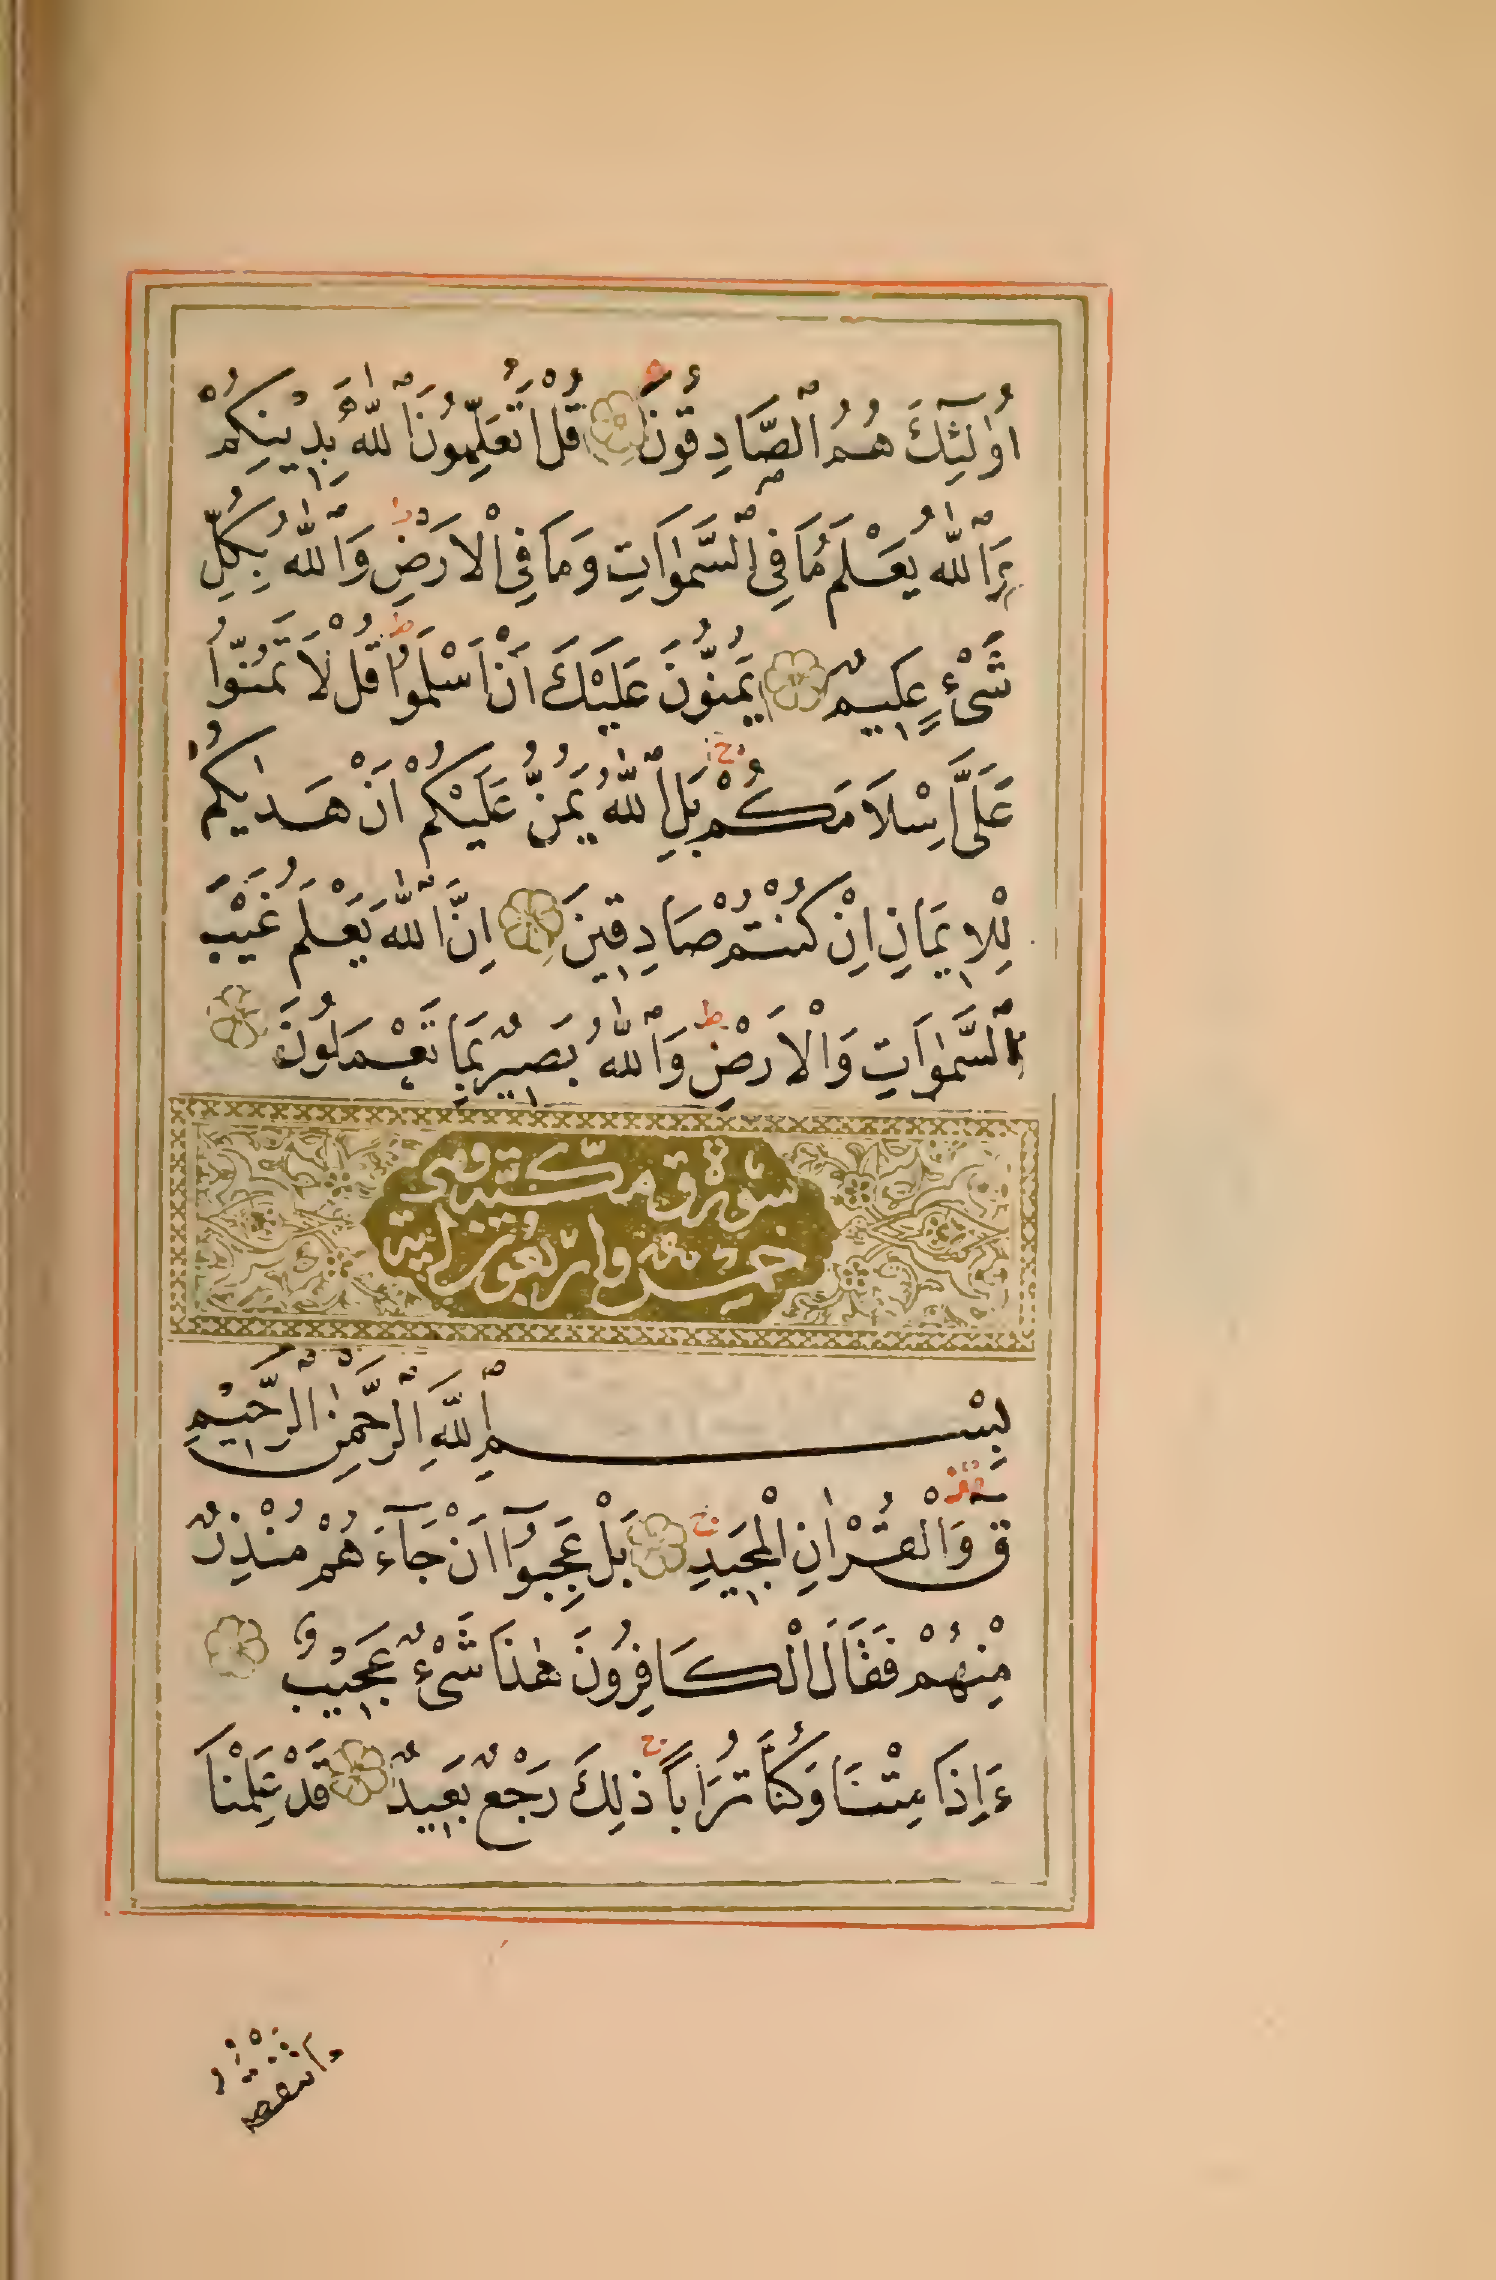 اُولٰٓئِكَ هُمُ ٱلصَّادِقُونَ قُلْ اَتُعَلِّمُونَ ٱللّٰهَ بِدِينِكُمْ
وَٱللّٰهُ يَعْلَمُ مَا فِى ٱلسَّمٰوَاتِ وَمَا فِى الْاَرْضِ ط وَٱللّٰهُ بِكُلِّ
شَىْءٍ عَلِيمٌ يَمُنُّونَ عَلَيْكَ اَنْ اَسْلَمُوا ط قُلْ لَا تَمُنُّوا
عَلَىَّ اِسْلَامَكُمْ ج بَلِ ٱللّٰهُ يَمُنُّ عَلَيْكُمْ اَنْ هَدٰيكُمْ
لِلْاِيمَانِ اِنْ كُنْتُمْ صَادِقِينَ اِنَّ ٱللّٰهَ يَعْلَمُ غَيْبَ
ٱلسَّمٰوَاتِ وَالْاَرْضِ ط وَٱللّٰهُ بَصِيرٌ بِمَا تَعْمَلُونَ
سورة ق مكّيّة وهى
خمس واربعون اية
بِسْمِ ٱللّٰهِ ٱلرَّحْمٰنِ ٱلرَّحِيمِ
قٓ وَالْقُرْاٰنِ الْمَجِيدِ ج بَلْ عَجِبُوٓا اَنْ جَآءَهُمْ مُنْذِرٌ
مِنْهُمْ فَقَالَ الْكَافِرُونَ هٰذَا شَىْءٌ عَجِيبٌ
ءَاِذَا مِتْنَا وَكُنَّا تُرَاباً ج ذٰلِكَ رَجْعٌ بَعِيدٌ قَدْ عَلِمْنَا
مَا تَنْقُصُ